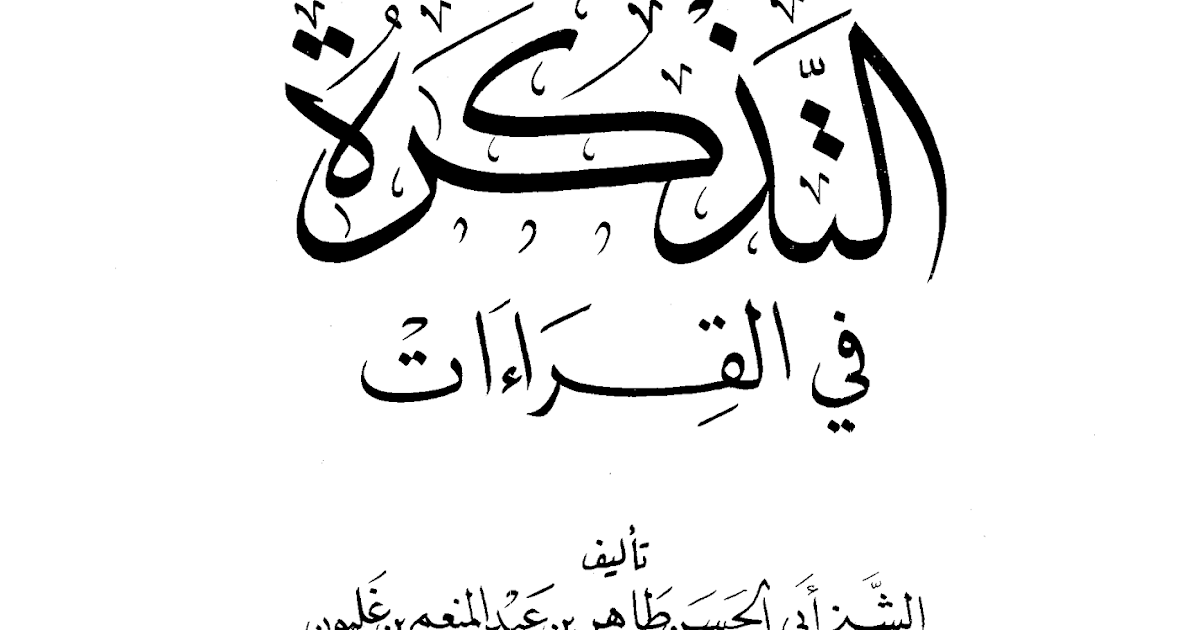 التَّذْكِرَةُ
في القِرَاءَاتْ
تأليف
الشَّيخ أَبي الحَسَن طَاهر بن عَبْد المنعم بن غَلبون